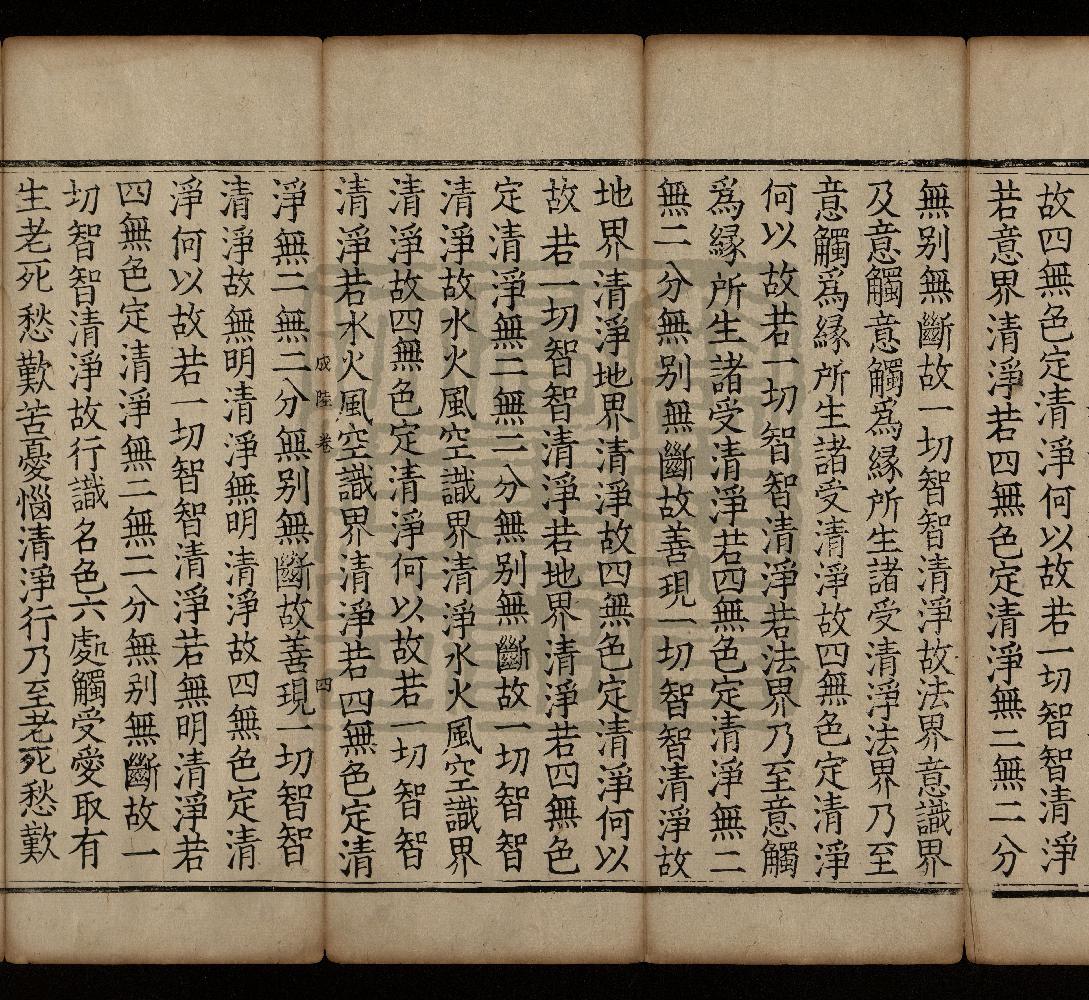 故四無色定清淨何以故若一切智智清淨
若意界清淨若四無色定清淨無二無二分
無别無斷故一切智智清淨故法界意識界
及意觸意觸爲縁所生諸受清淨法界乃至
意觸爲縁所生諸受清淨故四無色定清淨
何以故若一切智智清淨若法界乃至意觸
爲縁所生諸受清淨若四無色定清淨無二
無二分無别無斷故善現一切智智清淨故
地界清淨地界清淨故四無色定清淨何以
故若一切智智清淨若地界清淨若四無色
定清淨無二無二分無别無斷故一切智智
清淨故水火風空識界清淨水火風空識界
清淨故四無色定清淨何以故若一切智智
清淨若水火風空識界清淨若四無色定清
陸卷 四
淨無二無二分無别無斷故善現一切智智
清淨故無明清淨無明清淨故四無色定清
淨何以故若一切智智清淨若無明清淨若
四無色定清淨無二無二分無别無斷故一
切智智清淨故行識名色六處觸受愛取有
生老死愁歎苦憂惱清淨行乃至老死愁歎